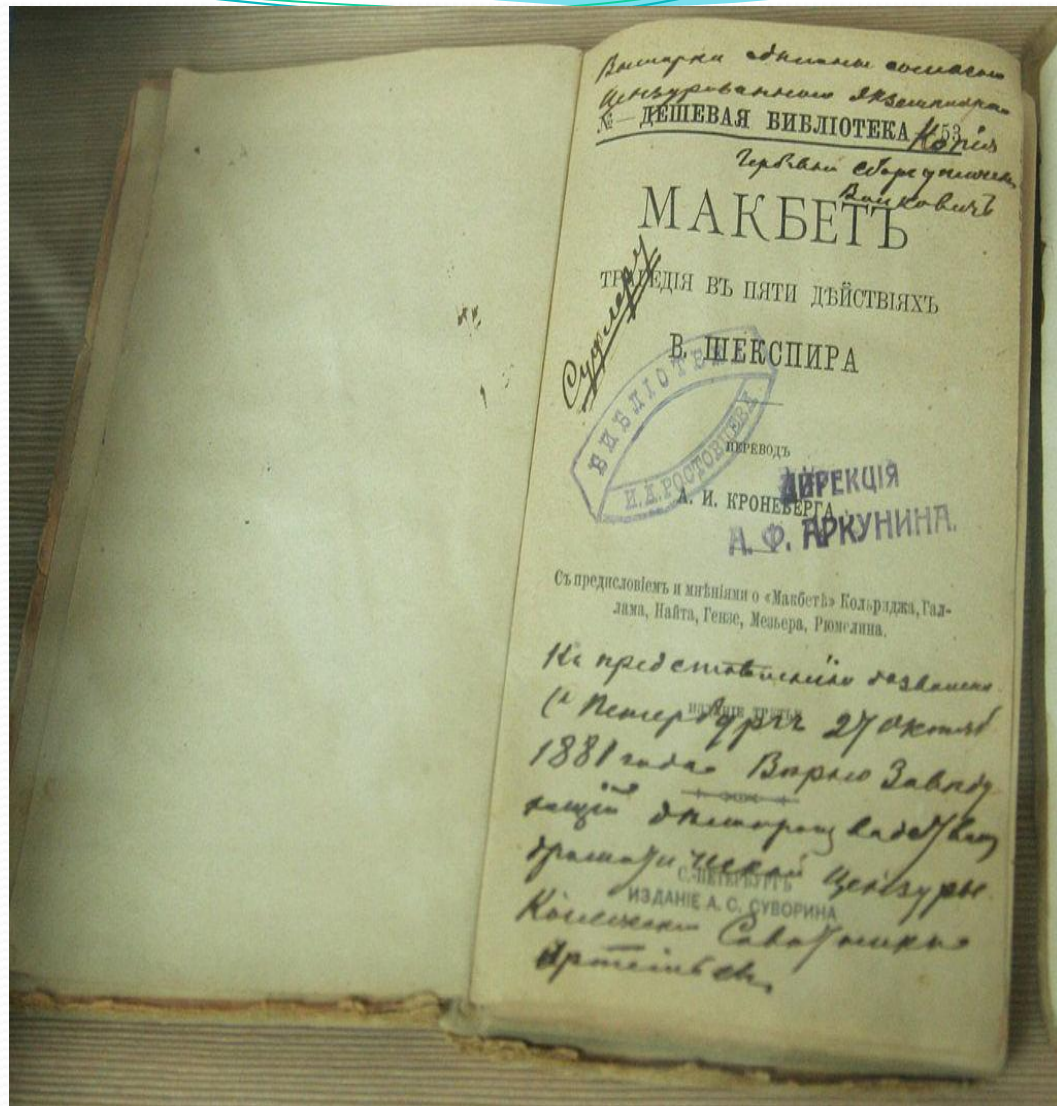 Вымарки сделаны согласно
Цензурованного Экземпляра
№— ДЕШЕВАЯ БИБЛІОТЕКА 53
Копія
МАКБЕТЪ
ТРАГЕДІЯ ВЪ ПЯТИ ДѢЙСТВІЯХЪ
Суфлеру
В. ШЕКСПИРА
БИБЛІОТЕКА
И.А.РОСТОВЦЕВА
ПЕРЕВОДЪ
А. И. КРОНЕБЕРГА
ДИРЕКЦІЯ
А. Ф. АРКУНИНА.
Съ предисловіемъ и мнѣніями о «Макбетѣ» Кольриджа, Гал-
лама, Найта, Гензе, Мезьера, Рюмелина.
Къ представленію дозволено
ИЗДАНІЕ ТРЕТЬЕ
С Петербургъ 27 Октяб
1881 года Вѣрно Завѣду
драматической Цензуры
С.-ПЕТЕРБУРГЪ
ИЗДАНІЕ А. С. СУВОРИНА